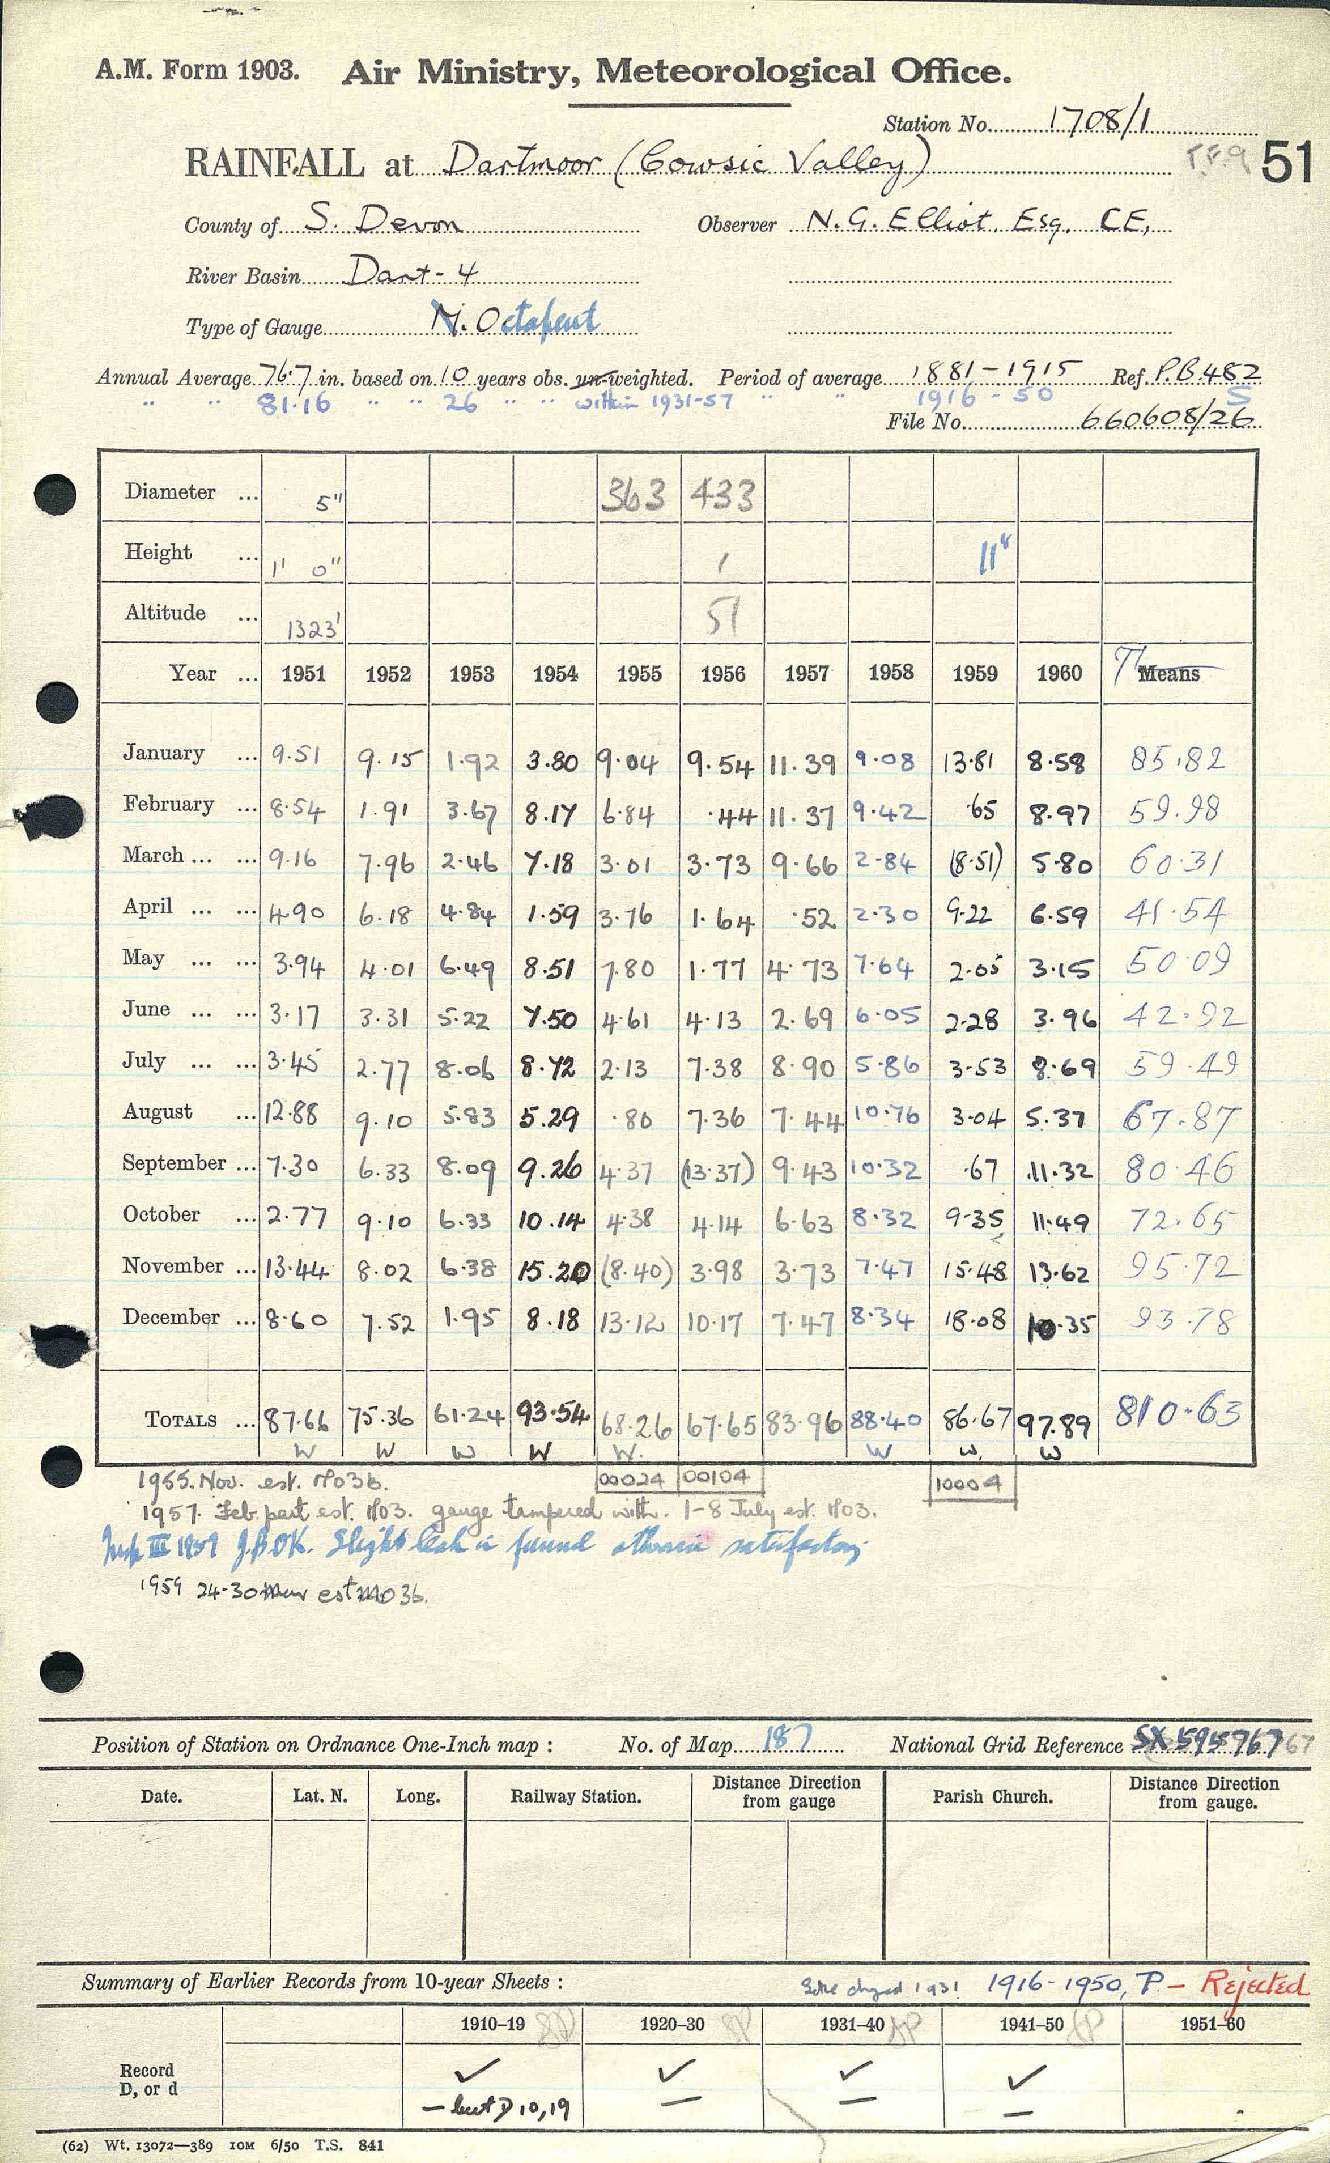 A.M. Form 1903. Air Ministry, Meteorological Office.
Station No. 1708/1
RAINFALL at Dartmoor (Cowsic Valley) T.F.9 51
County of S. Devon Observer N.G. Elliot, Esq. CE,
River Basin Dart-4
Type of Gauge M. Octapent
Annual Average 76.7 in. based on 10 years obs. un-weighted. Period of average 1881-1915 Ref. P.B.482
" " 81.16 " " 26 " " within 1931-57 " " 1916-50 S
File No. 660608/26
Diameter ... 5" 363 433
Height ... 1' 0" 1 11"
Altitude ... 1323' 51
Year ... 1951 1952 1953 1954 1955 1956 1957 1958 1959 1960 Means
January ... 9.51 9.15 1.92 3.80 9.04 9.54 11.39 9.08 13.81 8.58 85.82
February ... 8.54 1.91 3.67 8.17 6.84 .44 11.37 9.42 .65 8.97 59.98
March ... ... 9.16 7.96 2.46 7.18 3.01 3.73 9.66 2.84 (8.51) 5.80 60.31
April ... ... 4.90 6.18 4.84 1.59 3.76 1.64 .52 2.30 9.22 6.59 41.54
May ... ... 3.94 4.01 6.49 8.51 7.80 1.77 4.73 7.64 2.05 3.15 50.09
June ... ... 3.17 3.31 5.22 7.50 4.61 4.13 2.69 6.05 2.28 3.96 42.92
July ... ... 3.45 2.77 8.06 8.72 2.13 7.38 8.90 5.86 3.53 8.69 59.49
August ... 12.88 9.10 5.83 5.29 .80 7.36 7.44 10.76 3.04 5.37 67.87
September ... 7.30 6.33 8.09 9.26 4.37 (13.37) 9.43 10.32 .67 11.32 80.46
October ... 2.77 9.10 6.33 10.14 4.38 4.14 6.63 8.32 9.35 11.49 72.65
November ... 13.44 8.02 6.38 15.20 (8.40) 3.98 3.73 7.47 15.48 13.62 95.72
December ... 8.60 7.52 1.95 8.18 13.12 10.17 7.47 8.34 18.08 10.35 93.78
TOTALS ... 87.66 75.36 61.24 93.54 68.26 67.65 83.96 88.40 86.67 97.89 810.63
W W W W W. W W. W
1955. Nov. est. MO3b. 00024 00104 10004
1957. Feb part est. MO3. gauge tampered with. 1-8 July est. MO3.
Insp III 1959 J.B OK. Slight leak is found otherwise satisfactory
1959 24-30 Mar est MO3b.
Position of Station on Ordnance One-Inch map : No. of Map 187 National Grid Reference SX 595767
Date. Lat. N. Long. Railway Station. Distance Direction from gauge Parish Church. Distance Direction from gauge.
Summary of Earlier Records from 10-year Sheets : Site changed 1931 1916-1950, P - Rejected
1910–19 1920–30 1931–40 1941–50 1951–60
Record D, or d ✓ ✓ ✓ ✓
- but D 10,19 — — —
(62) Wt. 13072—389 10M 6/50 T.S. 841